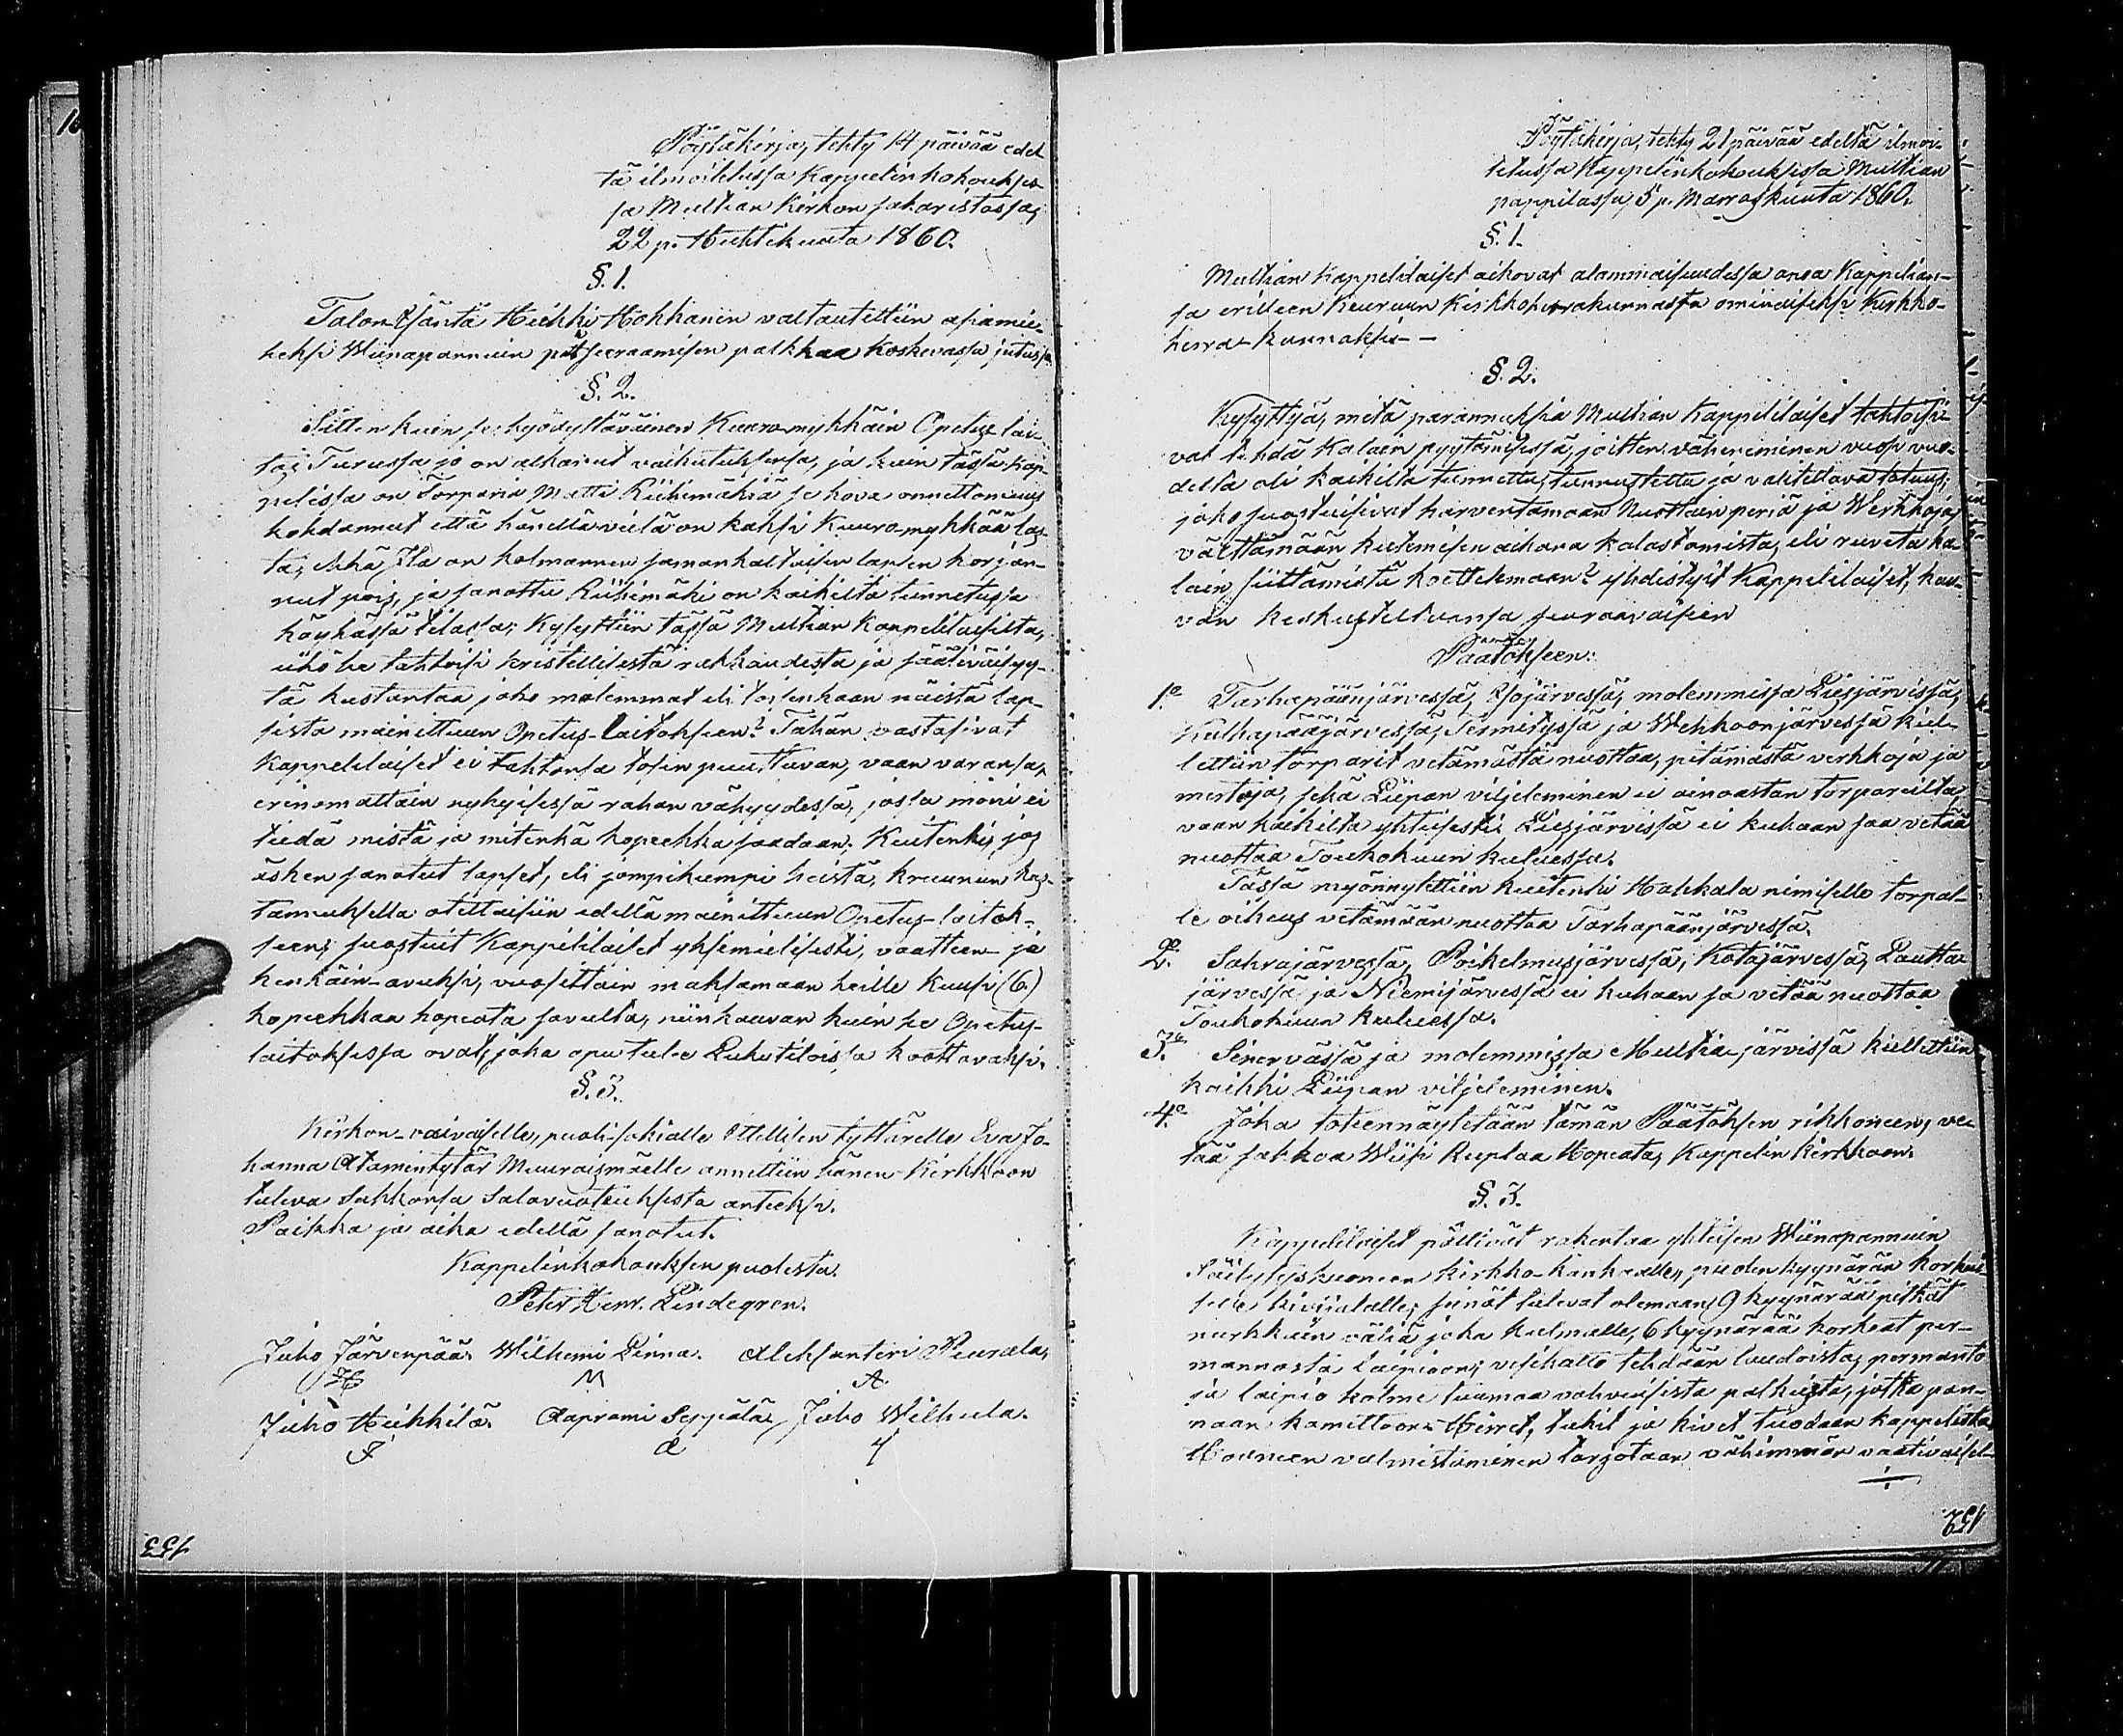 Pöytäkirja, tehty 14 päivää edel
tä ilmoitetussa Kappelinkokoukses-
sa Multian Kirkon sakaristossa,
22 p. Huhtikuuta 1860.
§. 1.
Talon Isäntä Heikki Hokkanin valtautettiin asiamie-
heksi Wiinapannuin putseeraamisen palkkaa koskevassa jutussa.
§. 2.
Sitten kuin se hyödyttäväinen Kuuromykkäin Opetus lai-
tos Turussa jo on alkanut vaikutuksensa, ja kuin tässä Kap-
pelissa on Torparia Matti Riihimäkiä se kova onnettomuus
kohdannut että hänellä vielä on kaksi Kuuro-mykkää las-
ta, ehkä Jla on kolmannen samankaltaisen lapsen korjan-
nut pois, ja sanottu Riihimäki on kaikilta tunnetussa
köyhässä tilassa; Kysyttiin tässä Multian Kappelilaisilta,
eikö he tahtoisi kristillisestä rakkaudesta ja sääliväisyy-
tä kustantaa joko molemmat eli toisenkaan näistä lap-
sista mainittuun Opetus-laitokseen? Tähän vastasivat
Kappelilaiset ei tahtonsa tosin puuttuvan, vaan varansa,
erinomattain nykyisessä rahan vähyydessä, jossa moni ei
tiedä mistä ja mitenkä kopeekka saadaan. Kuitenki, jos
äsken sanotut lapset, eli jompikumpi heistä, kruunun kus-
tannuksella otettaisiin edellä mainittuun Opetus-laitok-
seen; suostuit Kappelilaiset yksimielisesti, vaatteen- ja
kenkäin-avuksi, vuosittain maksamaan heille Kuusi (6)
kopeekkaa hopeata savulta, niinkauvan kuin he Opetus-
laitoksessa ovat, joka apu tulee Lukutiloissa koottavaksi.
§. 3.
Kirkon-vaivaselle, puoli-sokialle Ottellisen tyttärelle Eva Jo-
hanna Atamintytär Muuraismäelle annettiin hänen Kirkkoon
tuleva Sakkonsa Salavuoteuksesta anteeksi.
Paikka ja aika edellä sanotut.
Kappelinkokouksen puolesta.
Peter Henr. Lindegren.
Juho Järvenpää. Wilhemi Linna. Aleksanteri Peurala,
Juho Heikkilä. Aaprami Seppälä, Juho Wilhula.
153
Pöytäkirja, tehty 21 päivää edeltä ilmoi-
tetussa Kappelinkokouksessa Multian
pappilassa, 5 p. Marraskuuta 1860.
§. 1.
Multian Kappelilaiset aikovat alammaisuudessa anoa Kappelian-
sa erilleen Keuruun Kirkkoherrakunnasta ominaiseksi Kirkko-
herra-kunnaksi.-
§. 2.
Kysyttyä, mitä parannuksia Multian Kappelilaiset tahtoisi-
vat tehdä Kalain pyytämisessä, joitten väheneminen vuosi vuo-
delta oli kaikilta tunnettu, tunnustettu ja valitettava totuus;
joko suostuisivat harventamaan Nuottain periä ja Werkkoja,
välttämään kutemisen aikana kalastamista, eli ruveta ka-
lain siittämistä koettelemaan? yhdistyit Kappelilaiset, kau-
van keskusteltuansa seuraavaiseen
Päätökseen:
1:o Tarhapäänjärvessä, Isojärvessä, molemmissa Liesjärvissä,
Kulhapääjärvessä, Sermetyssä ja Wehkoonjärvessä kiel-
lettiin torparit vetämästä nuottaa, pitämästä verkkoja ja
mertoja, sekä Liipan viljeleminen ei ainoastan torpareilta,
vaan kaikilta yhteisesti. Liesjärvissä ei kukaan saa vetää
nuottaa Toukokuun kuluessa.
Tässä myönnytettiin kuitenki Hakkala nimiselle torpal-
le oikeus vetämään nuottaa Tarhapäänjärvessä.
2:o Sahrajärvessä, Poikelmusjärvessä, Kotajärvessä, Lautta-
järvessä ja Niemijärvessä ei kukaan sa vetää nuottaa
Toukokuun kuluessa.
3:o Sinervässä ja molemmissa Multia-järvissä kiellettiin
kaikki Liipan viljeleminen.
4:o Joka toteennäytetään tämän Päätöksen rikkoneen, ve-
tää sakkoa Wiisi Ruplaa Hopeata, Kappelin Kirkkoon.
§. 3.
Kappelilaiset pättivät rakentaa yhteisen Wiinapannuin
Säilytyshuoneen kirkko-kankaalle, puolen kyynärän korkui-
selle kivijalalle; seinät tulevat olemaan 9 kyynärää pitkät
nurkkain väliä joka kulmalle, 6 kyynärää korkeat per-
mannosta laipioon; vesikatto tehdään laudoista, permanto
ja laipio kolme tuumaa vahvuisista palkuista, jotka pan-
naan kamittoon. Hirret, tukit ja kivet tuodaan kappelista
Huoneen valmistaminen tarjotaan vähimmän vaativaisel-
152